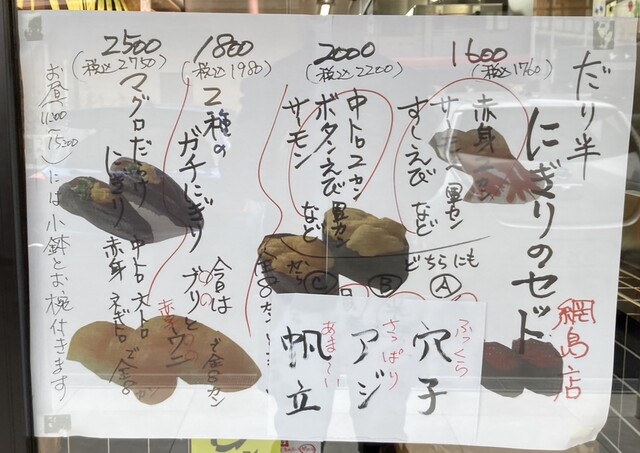 だり半
にぎりのセット
綱島店
1600
(税込1760)
赤身
すしえび など
どちらにも
Ⓐ
Ⓑ
Ⓒ
2000
(税込2200)
中トロ2カン
ボタンえび
サーモン など
1800
(税込1980)
2種の
ガチにぎり
今日は
ブリと
ウニ
2500
(税込2750)
マグロだらけ
にぎり
中トロ 大トロ
赤身 ネギトロ
お昼(11:00~15:00)には小鉢とお椀付きます
ふっくら
穴子
さっぱり
アジ
あま~い
帆立